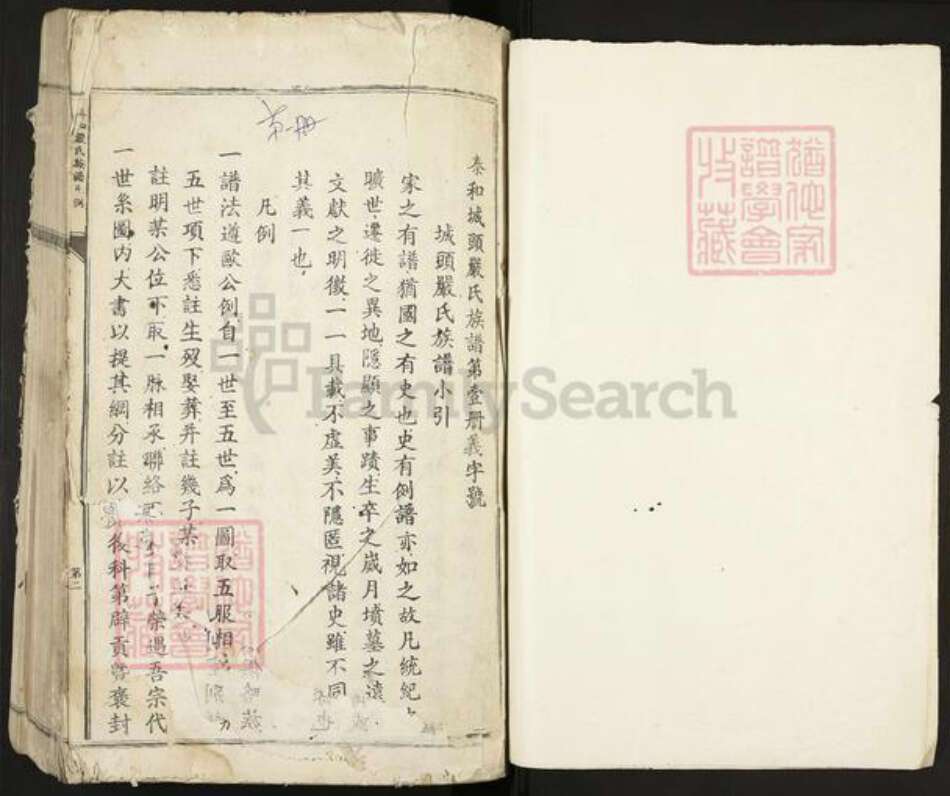 猶他家
譜學會
收藏
第一册
泰和城頭嚴氏族譜第壹册義字號
城頭嚴氏族譜小引
家之有譜猶國之有史也史有例譜亦如之故凡統紀之
曠世遷徙之異地隱顯之事蹟生卒之歲月墳墓之遠
文獻之明徵一一具載不虛美不隱匿視諸史雖不同
其義一也
凡例
一譜法遵歐公例自一世至五世爲一圖取五服相
五世項下悉註生歿娶葬并註幾子某
註明某公位下取一脉相承聯絡 榮遇吾宗代
一世系圖内大書以提其綱分註以 後科第辟貢暨褒封
嚴氏族譜凡例
第二
猶他家
譜學會
收藏
FamilySearch